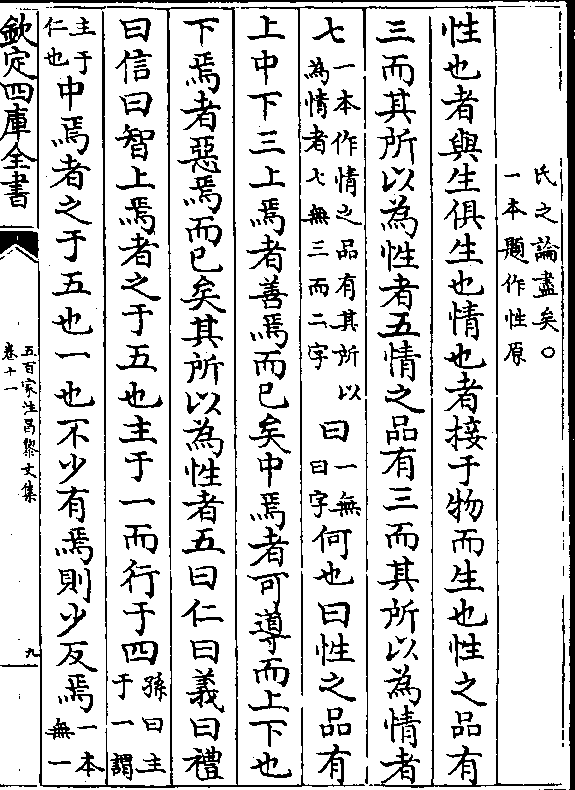 氏之論盡矣○
一本題作性原
性也者與生俱生也情也者接于物而生也性之品有
三而其所以為性者五情之品有三而其所以為情者
七一本作情之品有其所以為情者七無三而二字曰一無曰字何也曰性之品有
上中下三上焉者善焉而已矣中焉者可導而上下也
下焉者惡焉而已矣其所以為性者五曰仁曰義曰禮
曰信曰智上焉者之于五也主于一而行于四孫曰主于一謂
主于仁也中焉者之于五也一也不少有焉則少反焉一本無一
欽定四庫全書
五百家注昌黎文集
卷十一
九